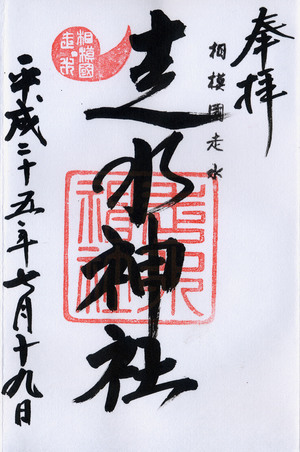 奉拝
相模國走水
走水神社
平成二十五年七月十九日
相模國走水
走水神社